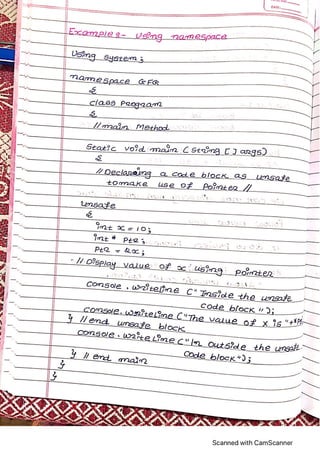 Example 2 - Using namespace
Using System ;
namespace GFG
{
class Program
{
// main Method
Static void main ( String [ ] args)
{
// Declaring a code block as unsafe
to make use of Pointer //
Unsafe
{
int x = 10;
int* ptr;
ptr = &x;
// Display value of x using pointer
console . writeline ("Inside the unsafe
code block ");
console. writeLine ("The value of x is "+*pt
} // end unsafe block
console . writeLine ("In outside the unsafe
} // end main code block");
}
}
Scanned with CamScanner